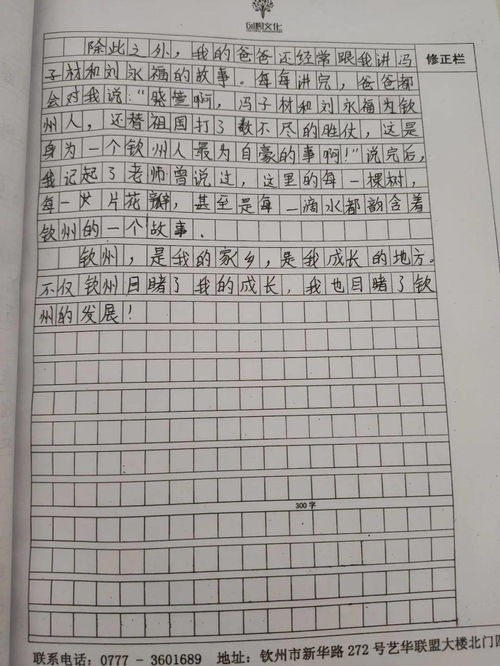 创想文化
修正栏
除此之外，我的爸爸还经常跟我讲冯
子材和刘永福的故事。每每讲完，爸爸都
会对我说："晓萱啊，冯子材和刘永福为钦
州人，还替祖国打了数不尽的胜仗，这是
身为一个钦州人最为自豪的事啊！"说完后，
我记起了老师曾说过，这里的每一棵树，
每一片花瓣，甚至是每一滴水都韵含着
钦州的一个故事．
钦州，是我的家乡，是我成长的地方。
不仅钦州目睹了我的成长，我也目睹了钦
州的发展！
300字
联系电话：0777 - 3601689 地址：钦州市新华路 272 号艺华联盟大楼北门四